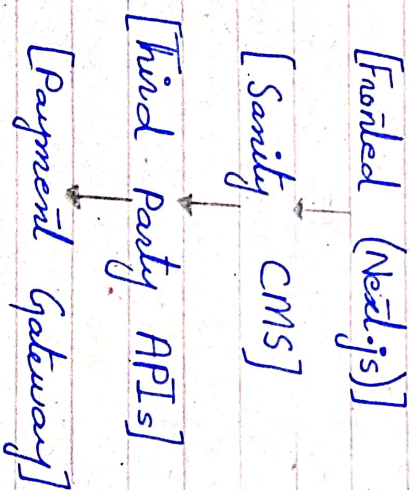 [Fronted (Next.js)]
[Sanity CMS]
[Third Party APIs]
[Payment Gateway]